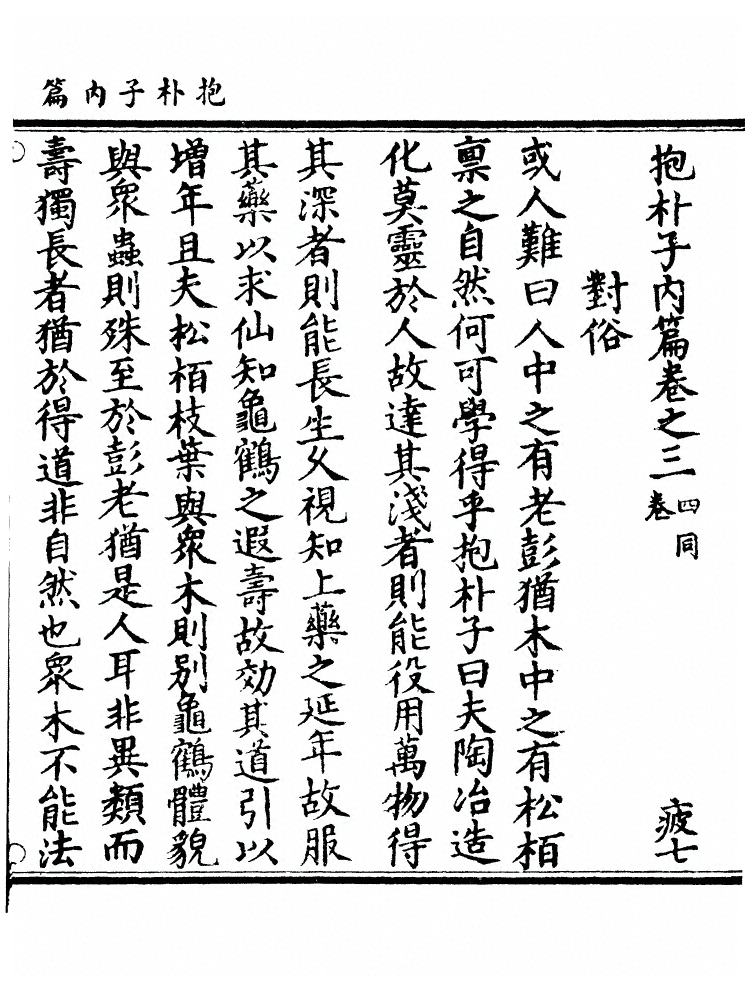 抱朴子内篇
抱朴子内篇卷之三 四同卷 疲七
對俗
或人難曰人中之有老彭猶木中之有松栢
禀之自然何可學得乎抱朴子曰夫陶冶造
化莫靈於人故達其淺者則能役用萬物得
其深者則能長生久視知上藥之延年故服
其藥以求仙知龜鶴之遐壽故効其道引以
增年且夫松栢枝葉與衆木則别龜鶴體貌
與衆蟲則殊至於彭老猶是人耳非異類而
壽獨長者猶於得道非自然也衆木不能法